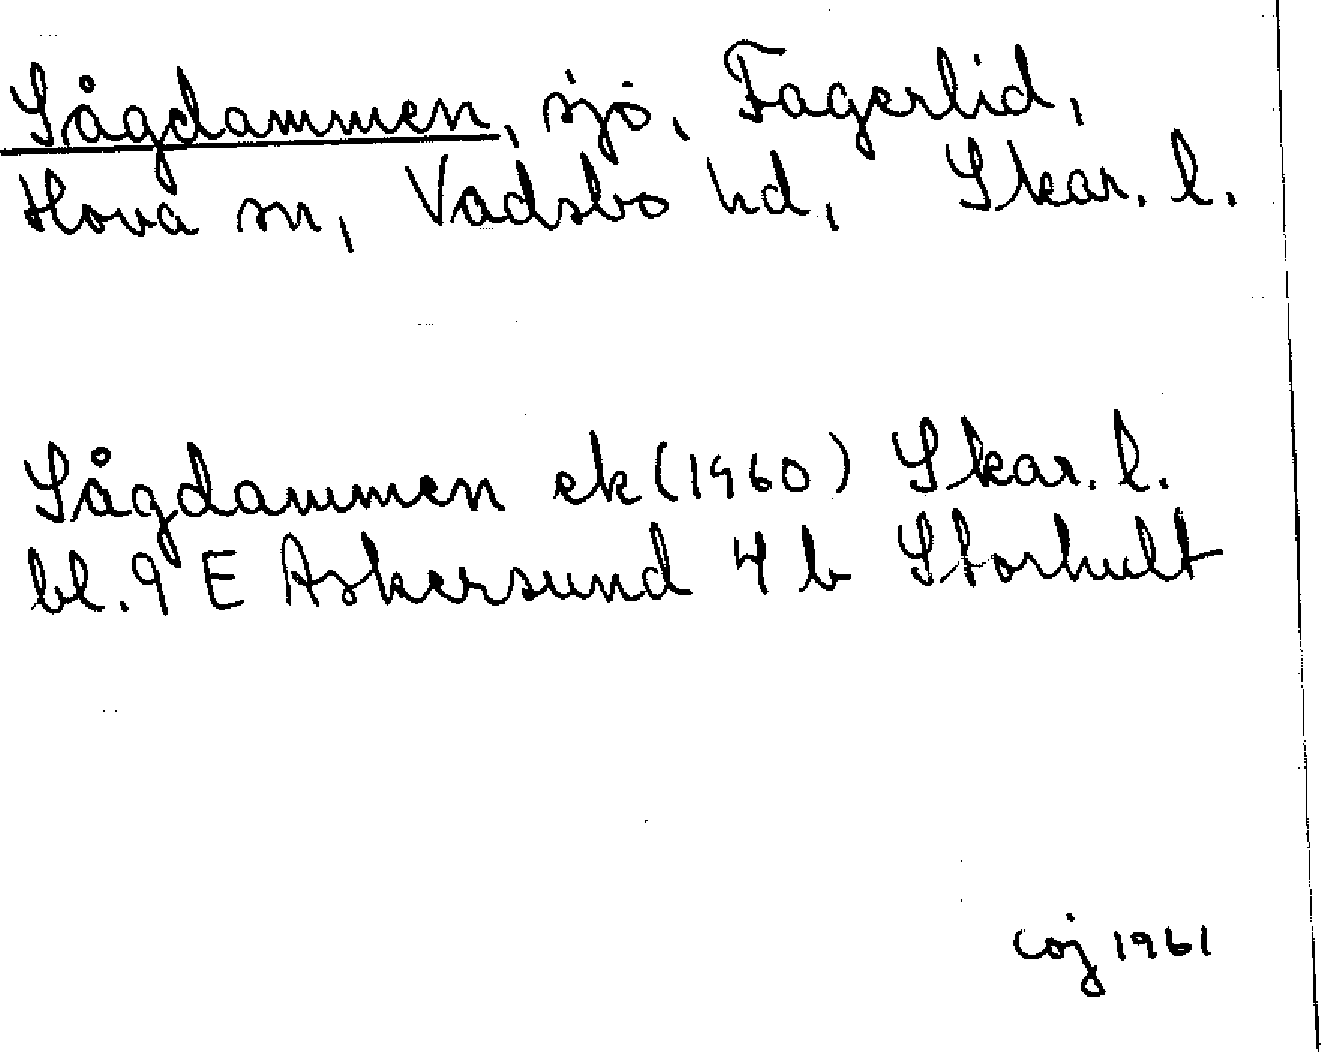 Sågdammen, sjö, Fagerlid,
Hova sn, Vadsbo hd, Skar. l.
Sågdammen ek (1960) Skar. l.
bl. 9 E Askersund 4 b Storhult
Coj 1961